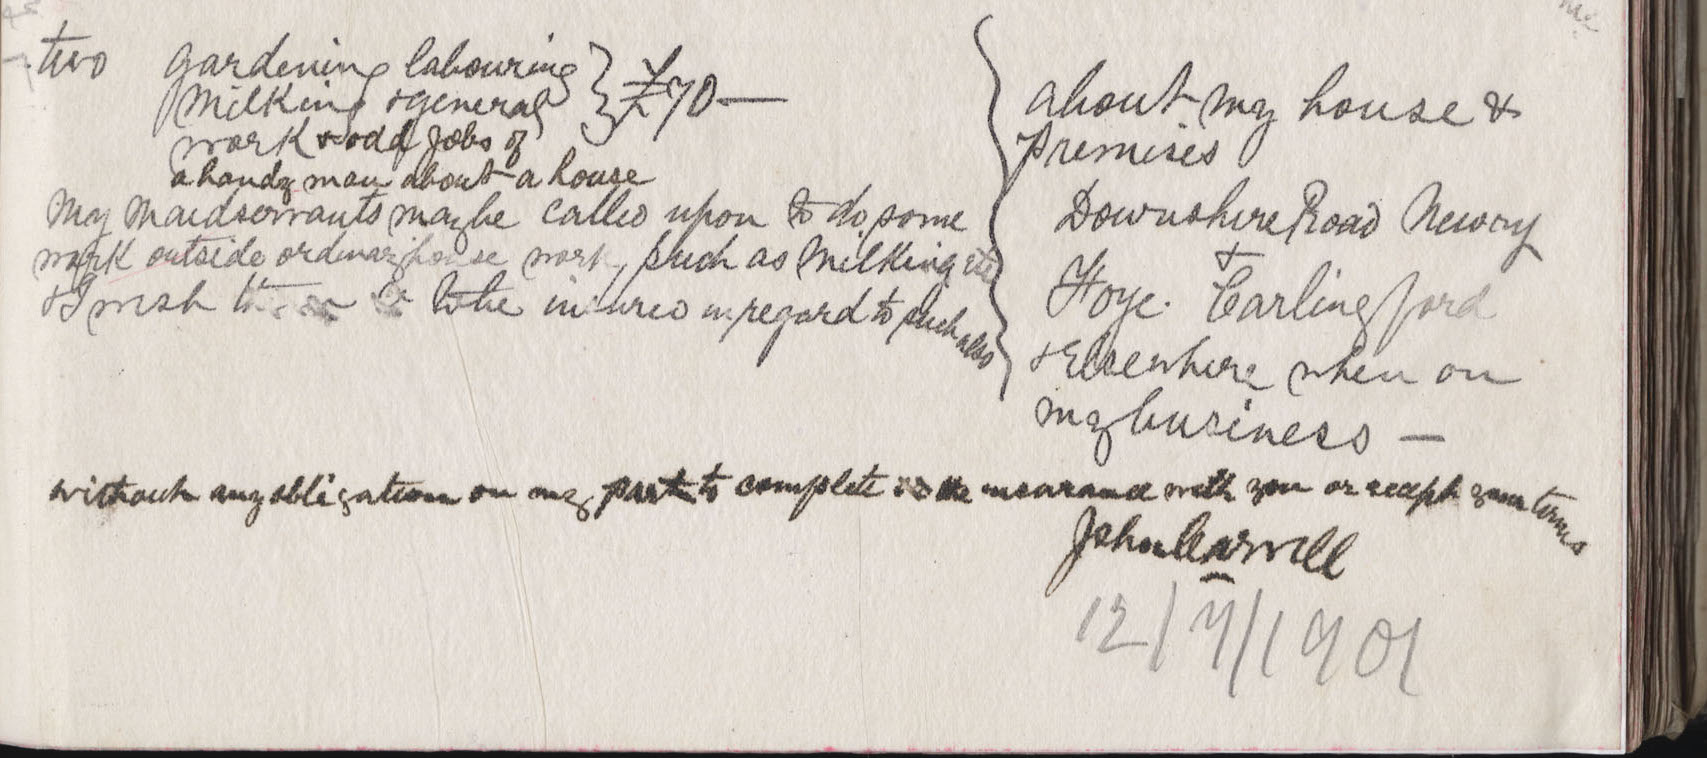 two gardening labouring } £70—
milking & general
work & odd jobs of
a handy man about a house
My maidservants may be called upon to do some
work outside ordinary house work, such as milking etc
& I wish to be insured in regard to such also
about my house &
premises
Downshire Road Newry
&
Carlingford
& Elsewhere when on
my business —
without any obligation on my part to complete the insurance with you or accept your terms
John
12/7/1901